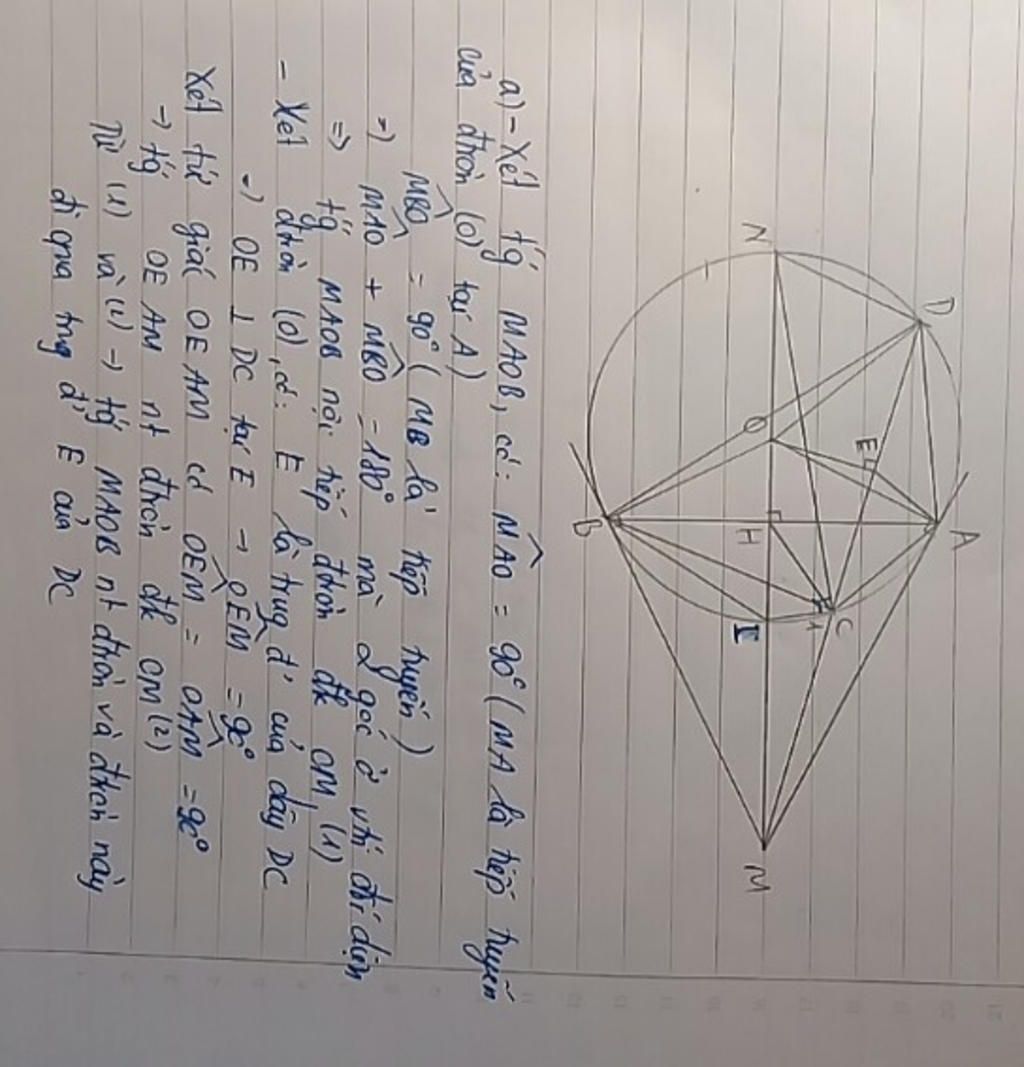 N
D
O
E
A
B
H
C
I
M
a) - Xét tg MAOB, có: MAO = 90° (MA là tiếp tuyến
của đtròn (O) tại A)
MBO = 90° (MB là tiếp tuyến)
→ MAO + MBO = 180° mà 2 góc ở vtrí đối diện
=> tg MAOB nội tiếp đtròn đk OM (1)
- Xét đtròn (O), có: E là trung đ' của dây DC
→ OE ⊥ DC tại E → OEM = 90°
Xét tứ giác OEAM có OEM = OAM = 90°
→ tg OEAM nt đtròn đk OM (2)
Từ (1) và (2) → tg MAOB nt đtròn và đtròn này
đi qua trng đ' E của DC